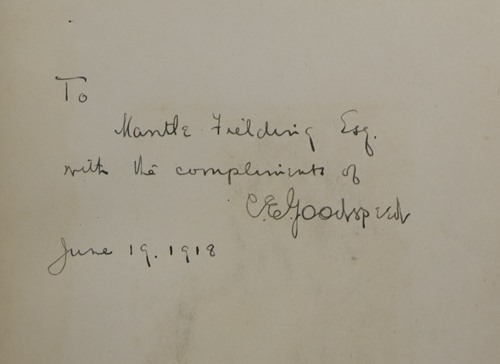 To
Mantle Fielding Esq.
with the compliments of
C.E. Goodspeed
June 19. 1918